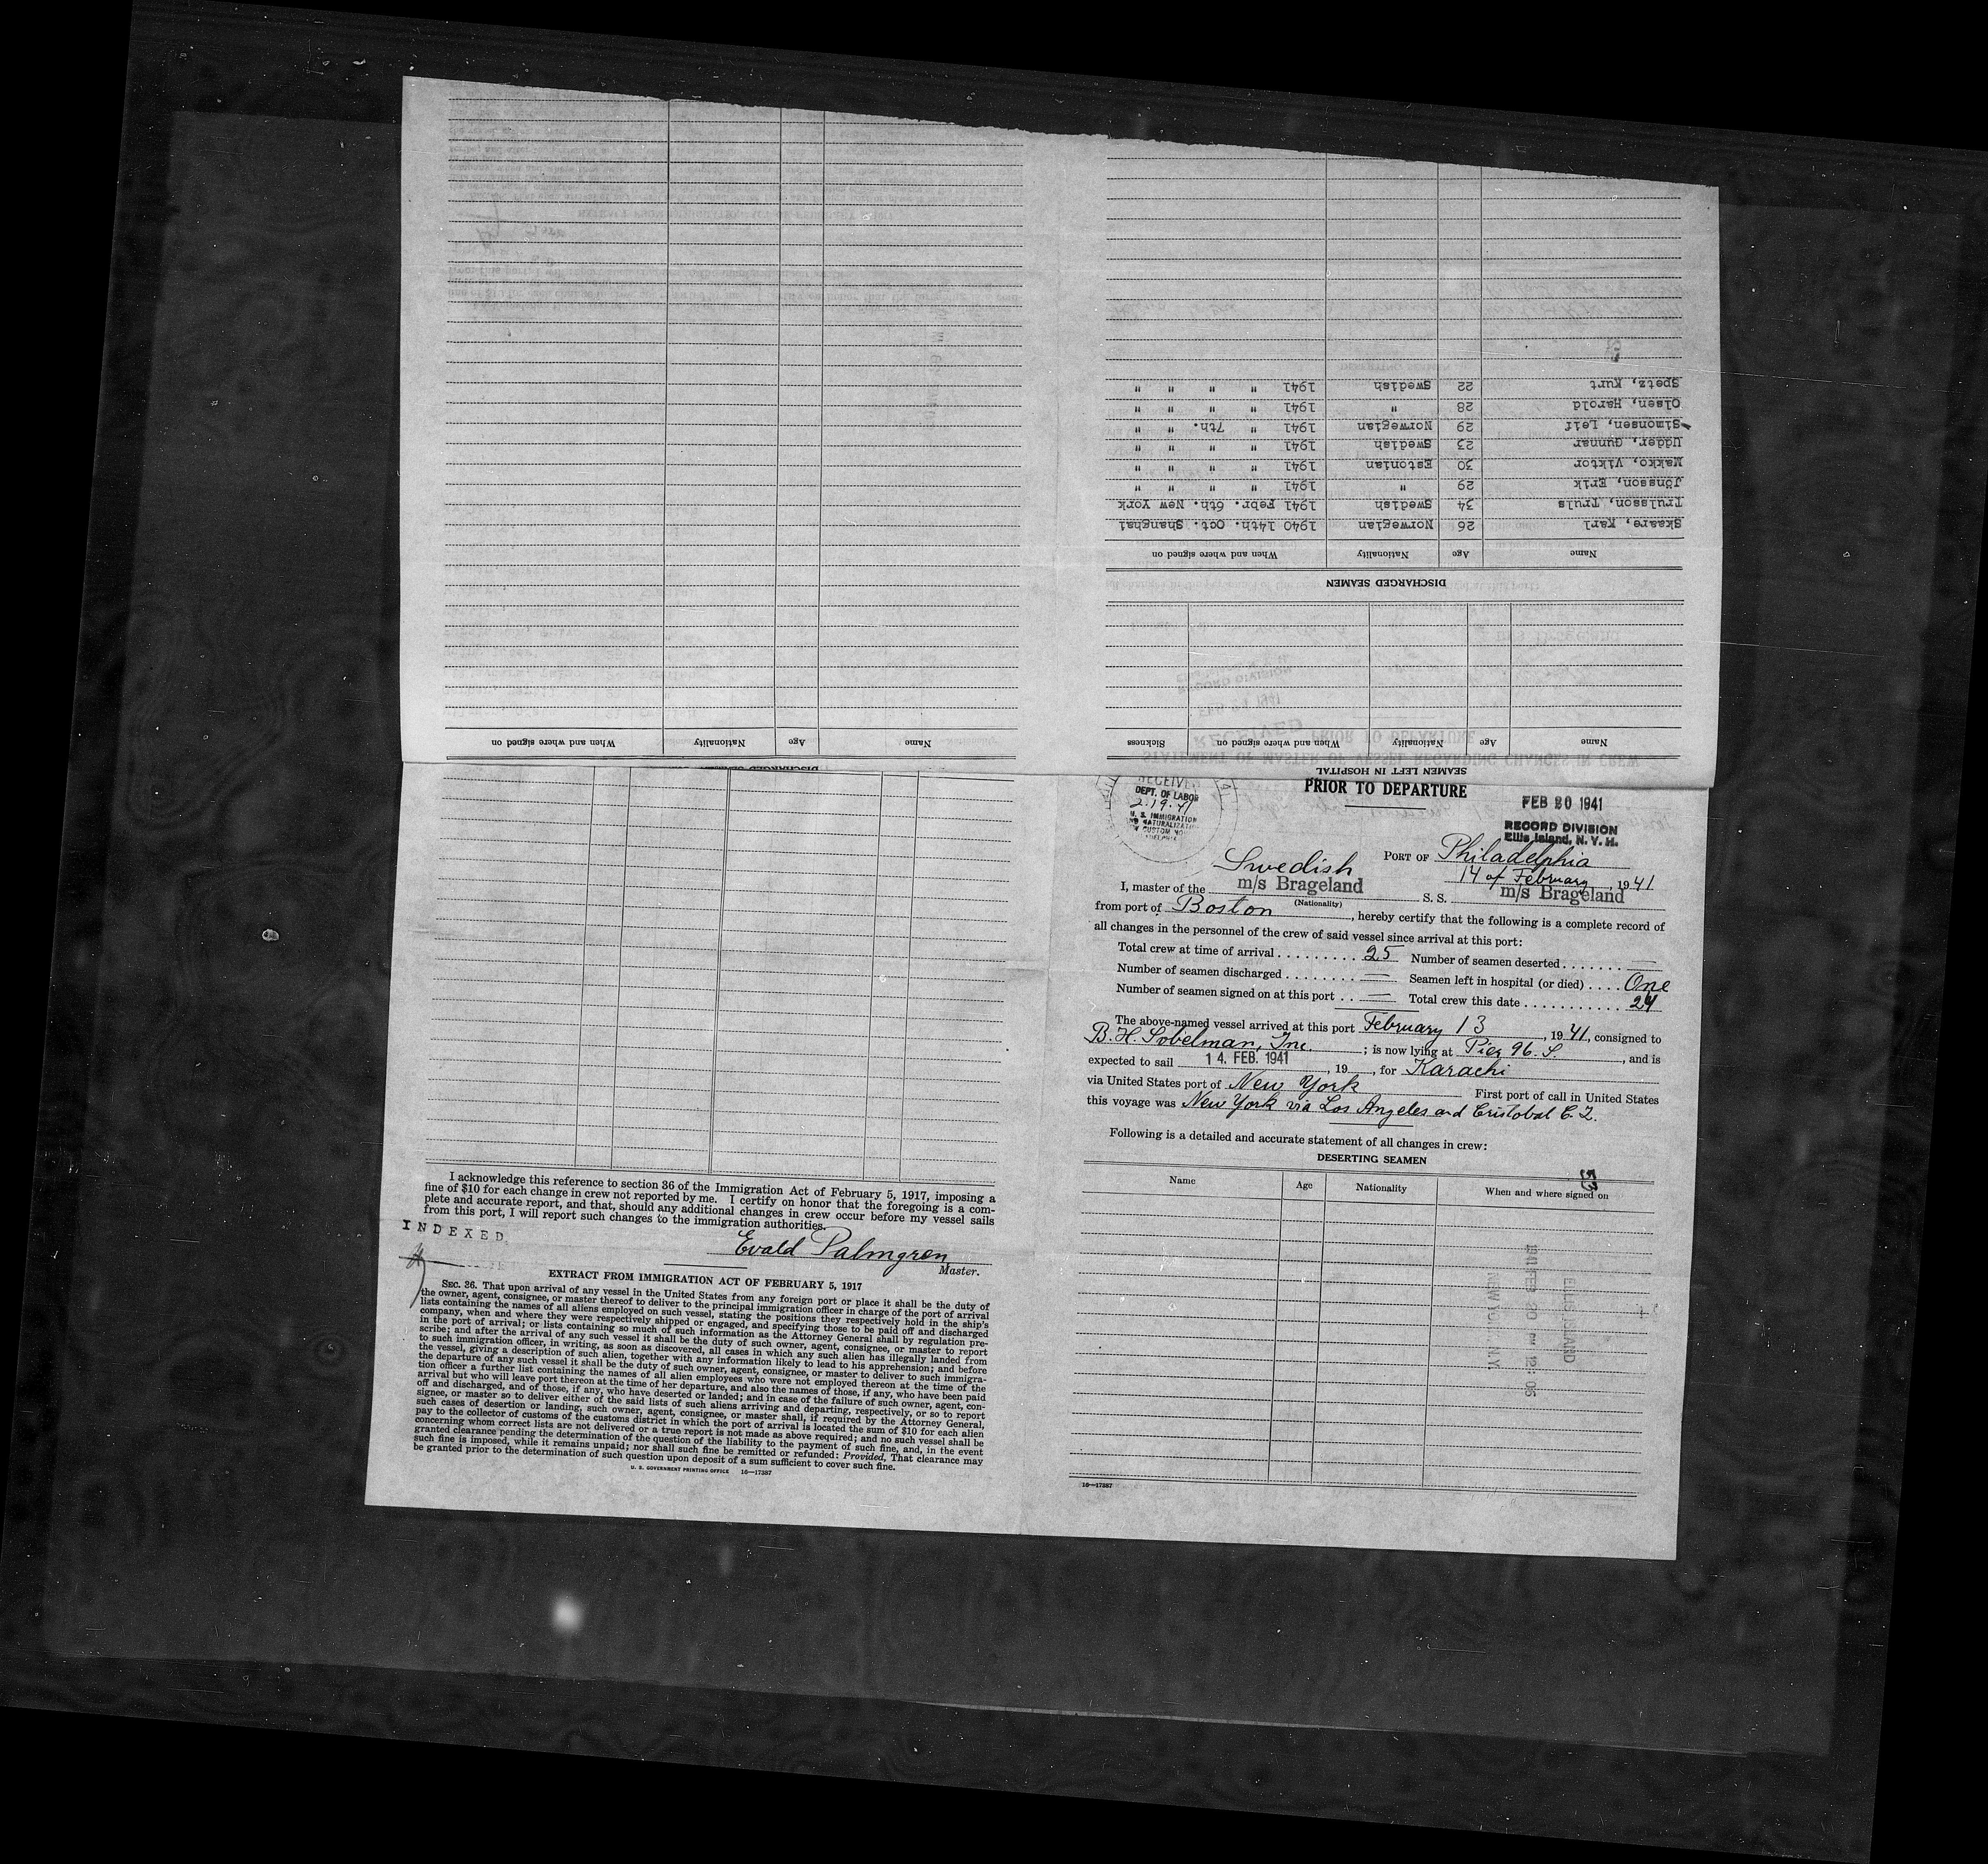 SEAMEN LEFT IN HOSPITAL
Name Age Nationality When and where signed on Sickness
DISCHARGED SEAMEN
Name Age Nationality When and where signed on
Skaare, Karl 26 Norwegian 1940 14th. Oct. Shanghai
Trulsson, Truls 34 Swedish 1941 Febr. 6th. New York
Jönsson, Erik 29 " 1941 " " " "
Makko, Viktor 30 Estonian 1941 " " " "
Udder, Gunnar 23 Swedish 1941 " " " "
Simonsen, Leif 29 Norwegian 1941 " 7th. " "
Olsen, Harold 28 " 1941 " " " "
Spetz, Kurt 22 Swedish 1941 " " " "
Name Age Nationality When and where signed on
DISCHARGED SEAMEN
I acknowledge this reference to section 36 of the Immigration Act of February 5, 1917, imposing a
fine of $10 for each change in crew not reported by me. I certify on honor that the foregoing is a com-
plete and accurate report, and that, should any additional changes in crew occur before my vessel sails
from this port, I will report such changes to the immigration authorities.
INDEXED
Evald Palmgren
Master.
EXTRACT FROM IMMIGRATION ACT OF FEBRUARY 5, 1917
SEC. 36. That upon arrival of any vessel in the United States from any foreign port or place it shall be the duty of
the owner, agent, consignee, or master thereof to deliver to the principal immigration officer in charge of the port of arrival
lists containing the names of all aliens employed on such vessel, stating the positions they respectively hold in the ship's
company, when and where they were respectively shipped or engaged, and specifying those to be paid off and discharged
in the port of arrival; or lists containing so much of such information as the Attorney General shall by regulation pre-
scribe; and after the arrival of any such vessel it shall be the duty of such owner, agent, consignee, or master to report
to such immigration officer, in writing, as soon as discovered, all cases in which any such alien has illegally landed from
the vessel, giving a description of such alien, together with any information likely to lead to his apprehension; and before
the departure of any such vessel it shall be the duty of such owner, agent, consignee, or master to deliver to such immigra-
tion officer a further list containing the names of all alien employees who were not employed thereon at the time of the
arrival but who will leave port thereon at the time of her departure, and also the names of those, if any, who have been paid
off and discharged, and of those, if any, who have deserted or landed; and in case of the failure of such owner, agent, con-
signee, or master so to deliver either of the said lists of such aliens arriving and departing, respectively, or so to report
such cases of desertion or landing, such owner, agent, consignee, or master shall, if required by the Attorney General,
pay to the collector of customs of the customs district in which the port of arrival is located the sum of $10 for each alien
concerning whom correct lists are not delivered or a true report is not made as above required; and no such vessel shall be
granted clearance pending the determination of the question of the liability to the payment of such fine, and, in the event
such fine is imposed, while it remains unpaid; nor shall such fine be remitted or refunded: Provided, That clearance may
be granted prior to the determination of such question upon deposit of a sum sufficient to cover such fine.
U. S. GOVERNMENT PRINTING OFFICE 16—17387
PRIOR TO DEPARTURE
RECEIVED
DEPT. OF LABOR
2.19.41
U. S. IMMIGRATION
FEB 20 1941
RECORD DIVISION
Ellis Island, N. Y. H.
PORT OF Philadelphia
14 of February, 1941
I, master of the Swedish m/s Brageland S. S. m/s Brageland
(Nationality)
from port of Boston, hereby certify that the following is a complete record of
all changes in the personnel of the crew of said vessel since arrival at this port:
Total crew at time of arrival 25 Number of seamen deserted —
Number of seamen discharged — Seamen left in hospital (or died) One
Number of seamen signed on at this port — Total crew this date 24
The above-named vessel arrived at this port February 13, 1941, consigned to
B. H. Sobelman, Inc. ; is now lying at Pier 96. S, and is
expected to sail 14. FEB. 1941, 19 , for Karachi
via United States port of New York First port of call in United States
this voyage was New York via Los Angeles and Cristobal C. Z.
Following is a detailed and accurate statement of all changes in crew:
DESERTING SEAMEN
Name Age Nationality When and where signed on
ELLIS ISLAND
1941 FEB 20 PM 12:06
NEW YORK, N.Y.
16—17387